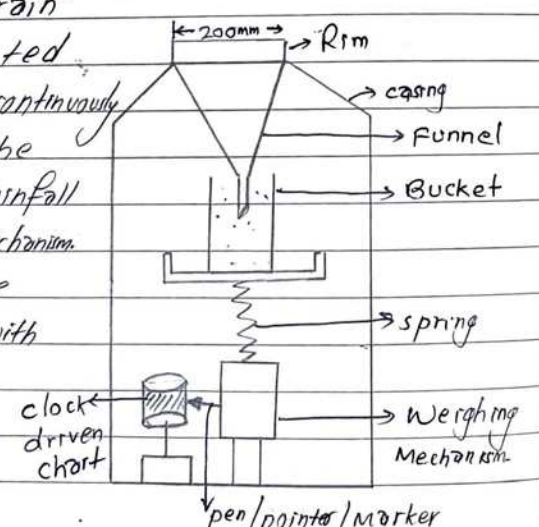 rain
ted
continuously
be
infall
chanism.
e
with
200mm
Rim
casing
Funnel
Bucket
spring
Weighing
Mechanism.
clock
driven
chart
pen/pointer/marker